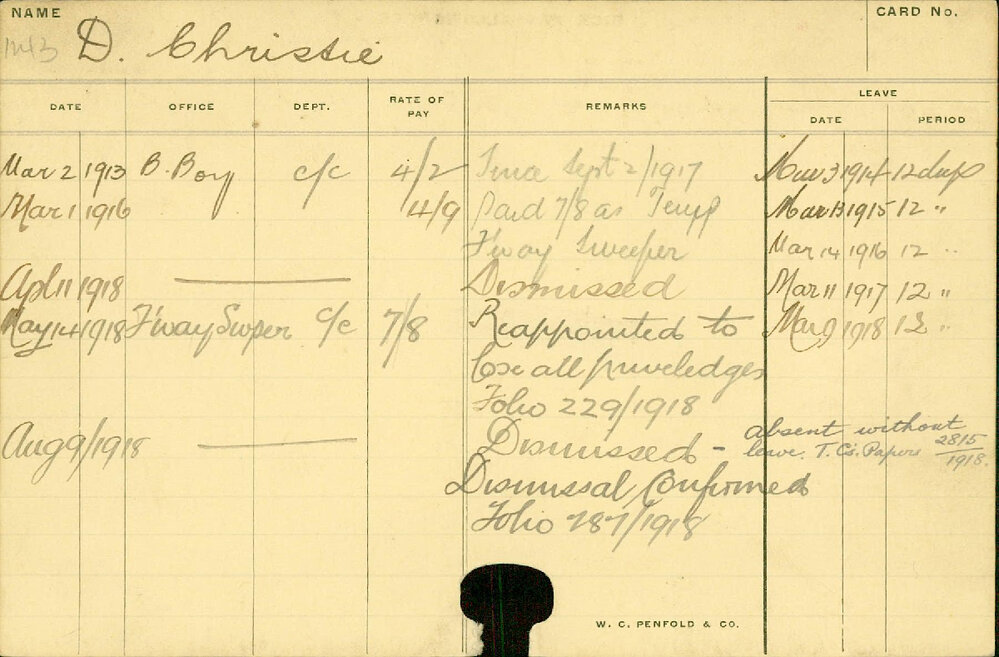 NAME CARD No.
1213 D. Christie
DATE OFFICE DEPT. RATE OF PAY REMARKS LEAVE
DATE PERIOD
Mar 2 1913 B. Boy c/c 4/2 Sept 2/1917 3 1914 12 days
Mar 1 1916 4/9 Paid 7/8 as Temp Mar 13 1915 12 "
F'way Sweeper Mar 14 1916 12 "
Apl 11 1918 — Dismissed Mar 11 1917 12 "
May 14 1918 F'way Swper c/c 7/8 Reappointed to Mar 9 1918 12 "
lose all priveledges
Folio 229/1918
Aug 9/1918 — Dismissed - absent without
leave. T.C's. Papers 2815/1918.
Dismissal Confirmed
Folio 787/1918
W. C. PENFOLD & CO.